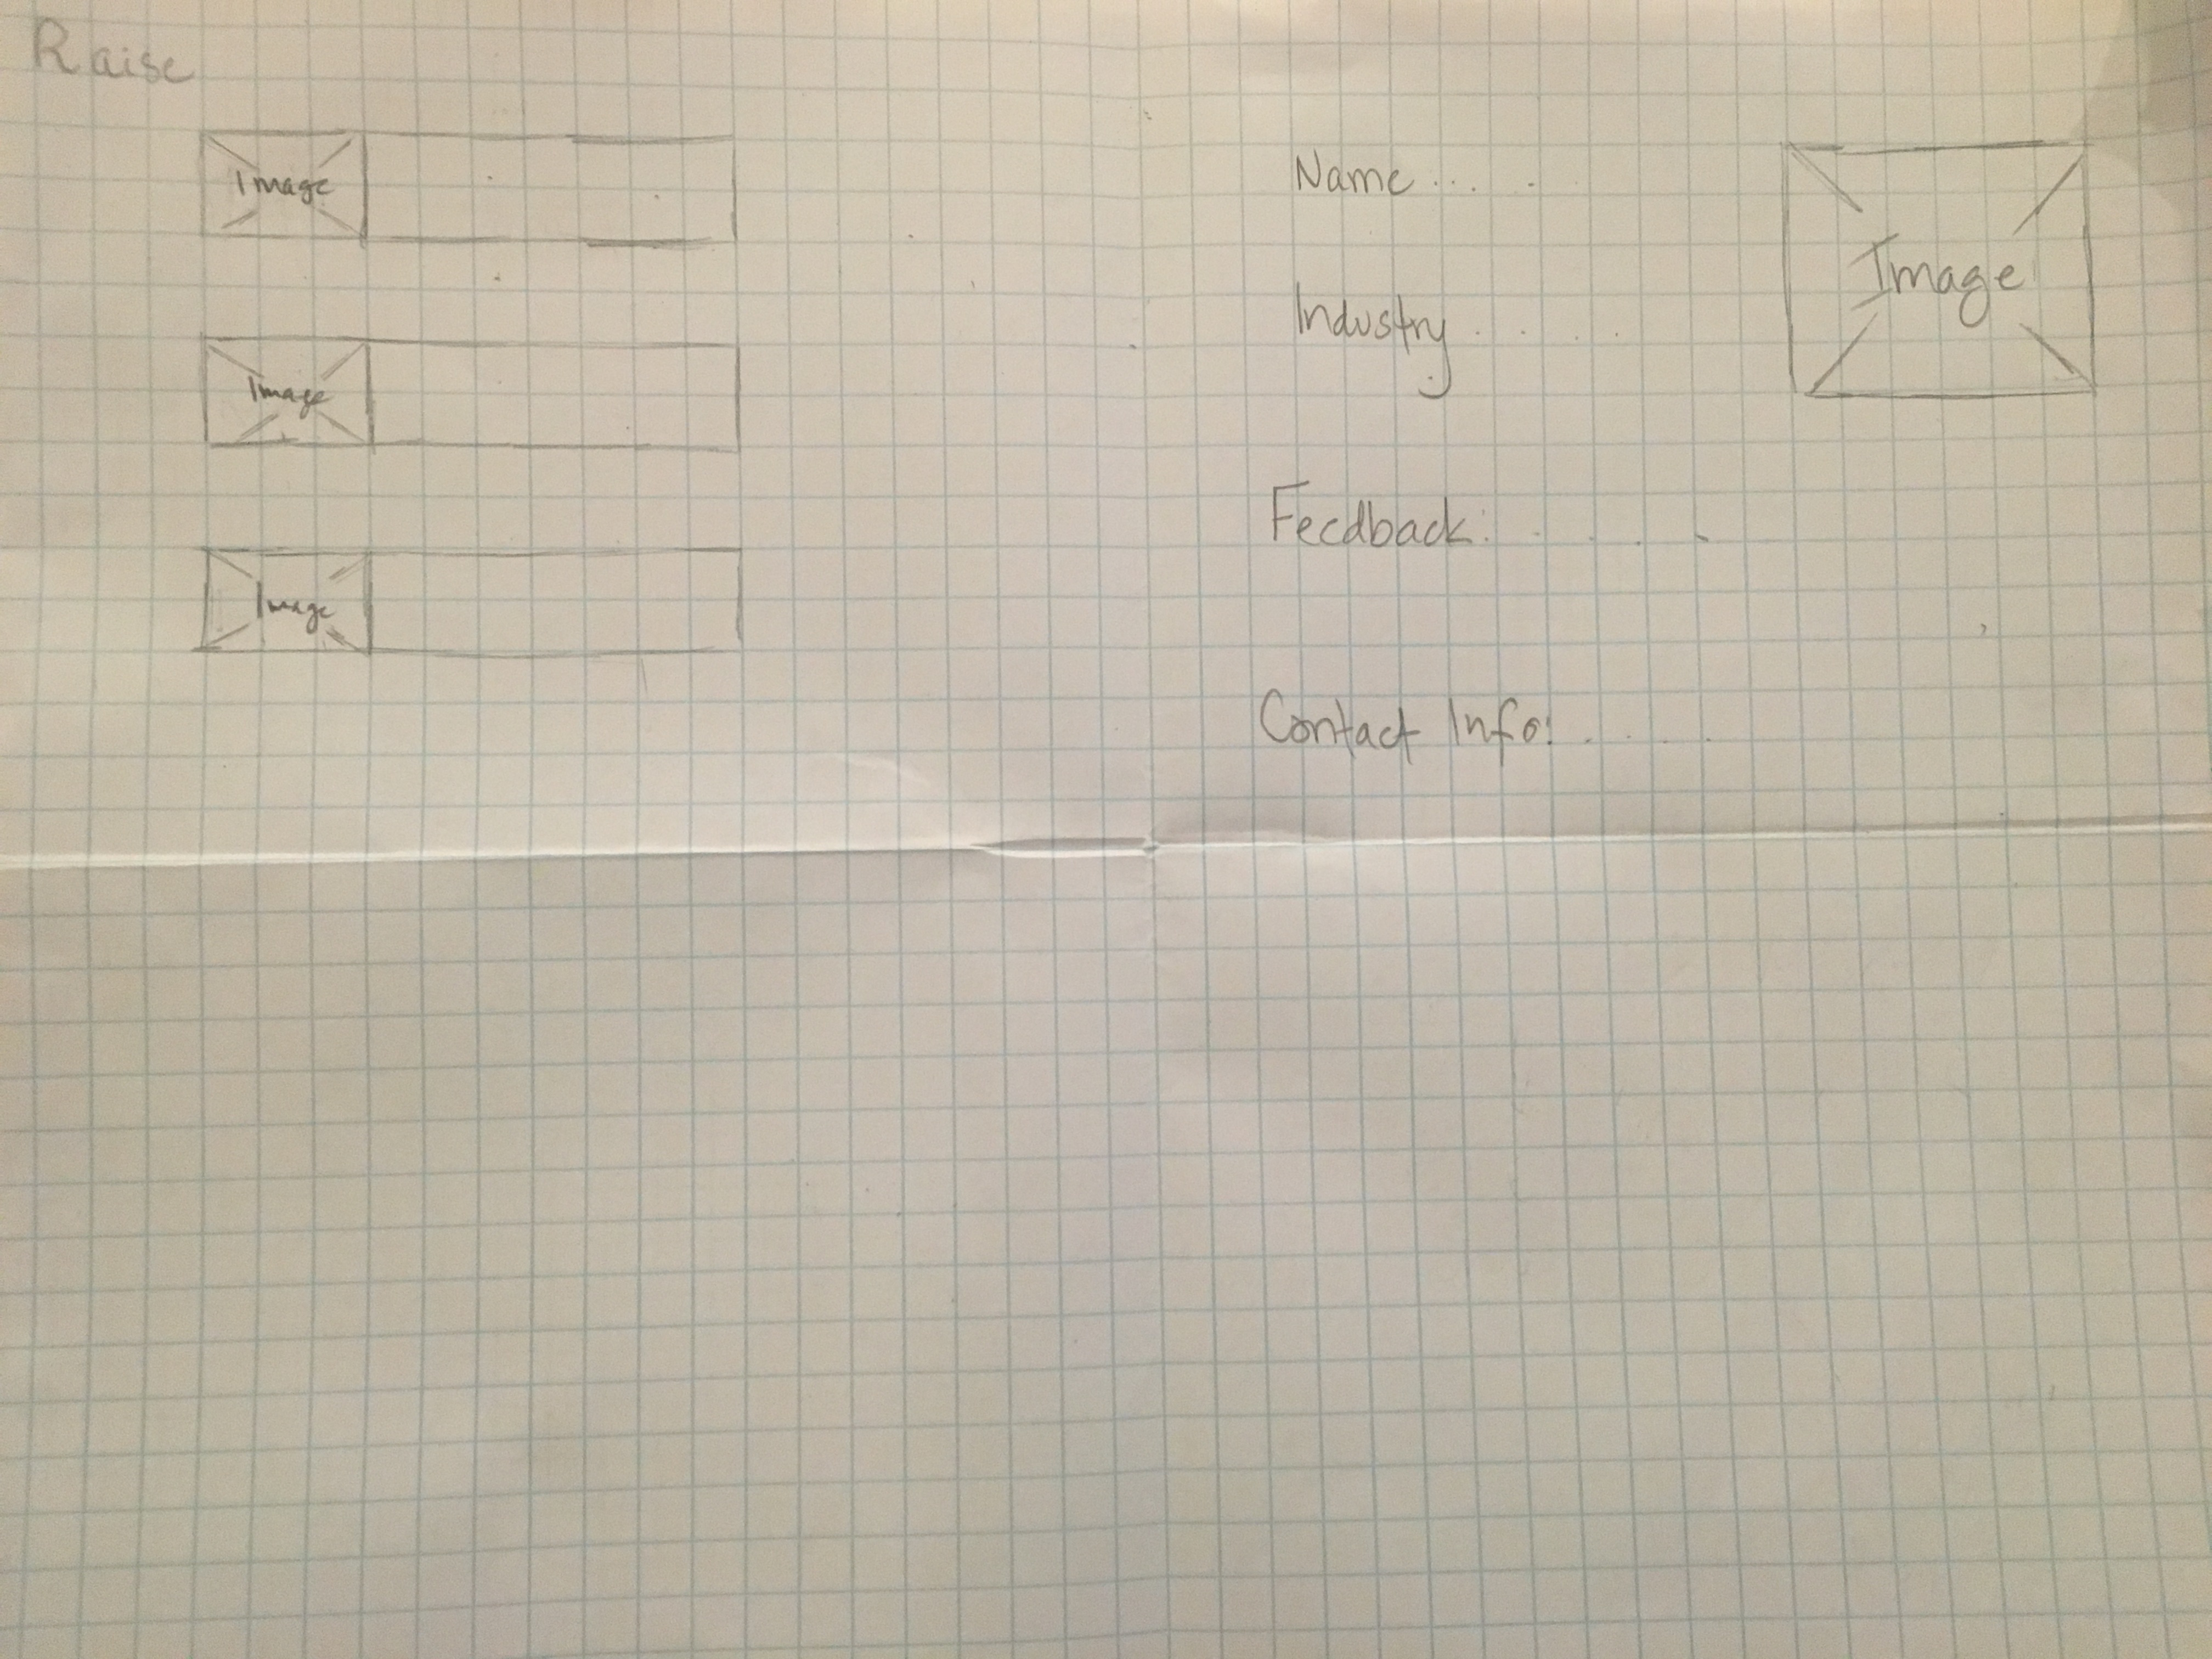 Raise
Image
Image
Image
Name....
Industry....
Image
Feedback:....
Contact Info:....